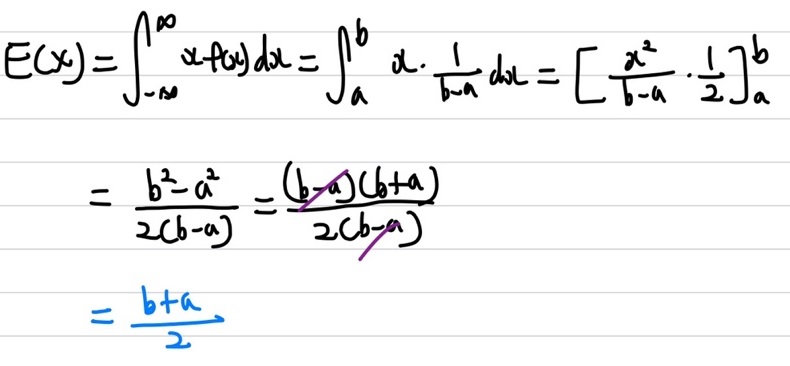 E(x) = ∫_{-∞}^{∞} x f(x) dx = ∫_a^b x · \frac{1}{b-a} dx = [ \frac{x²}{b-a} · \frac{1}{2} ]_a^b
= \frac{b²-a²}{2(b-a)} = \frac{(b-a)(b+a)}{2(b-a)}
= \frac{b+a}{2}